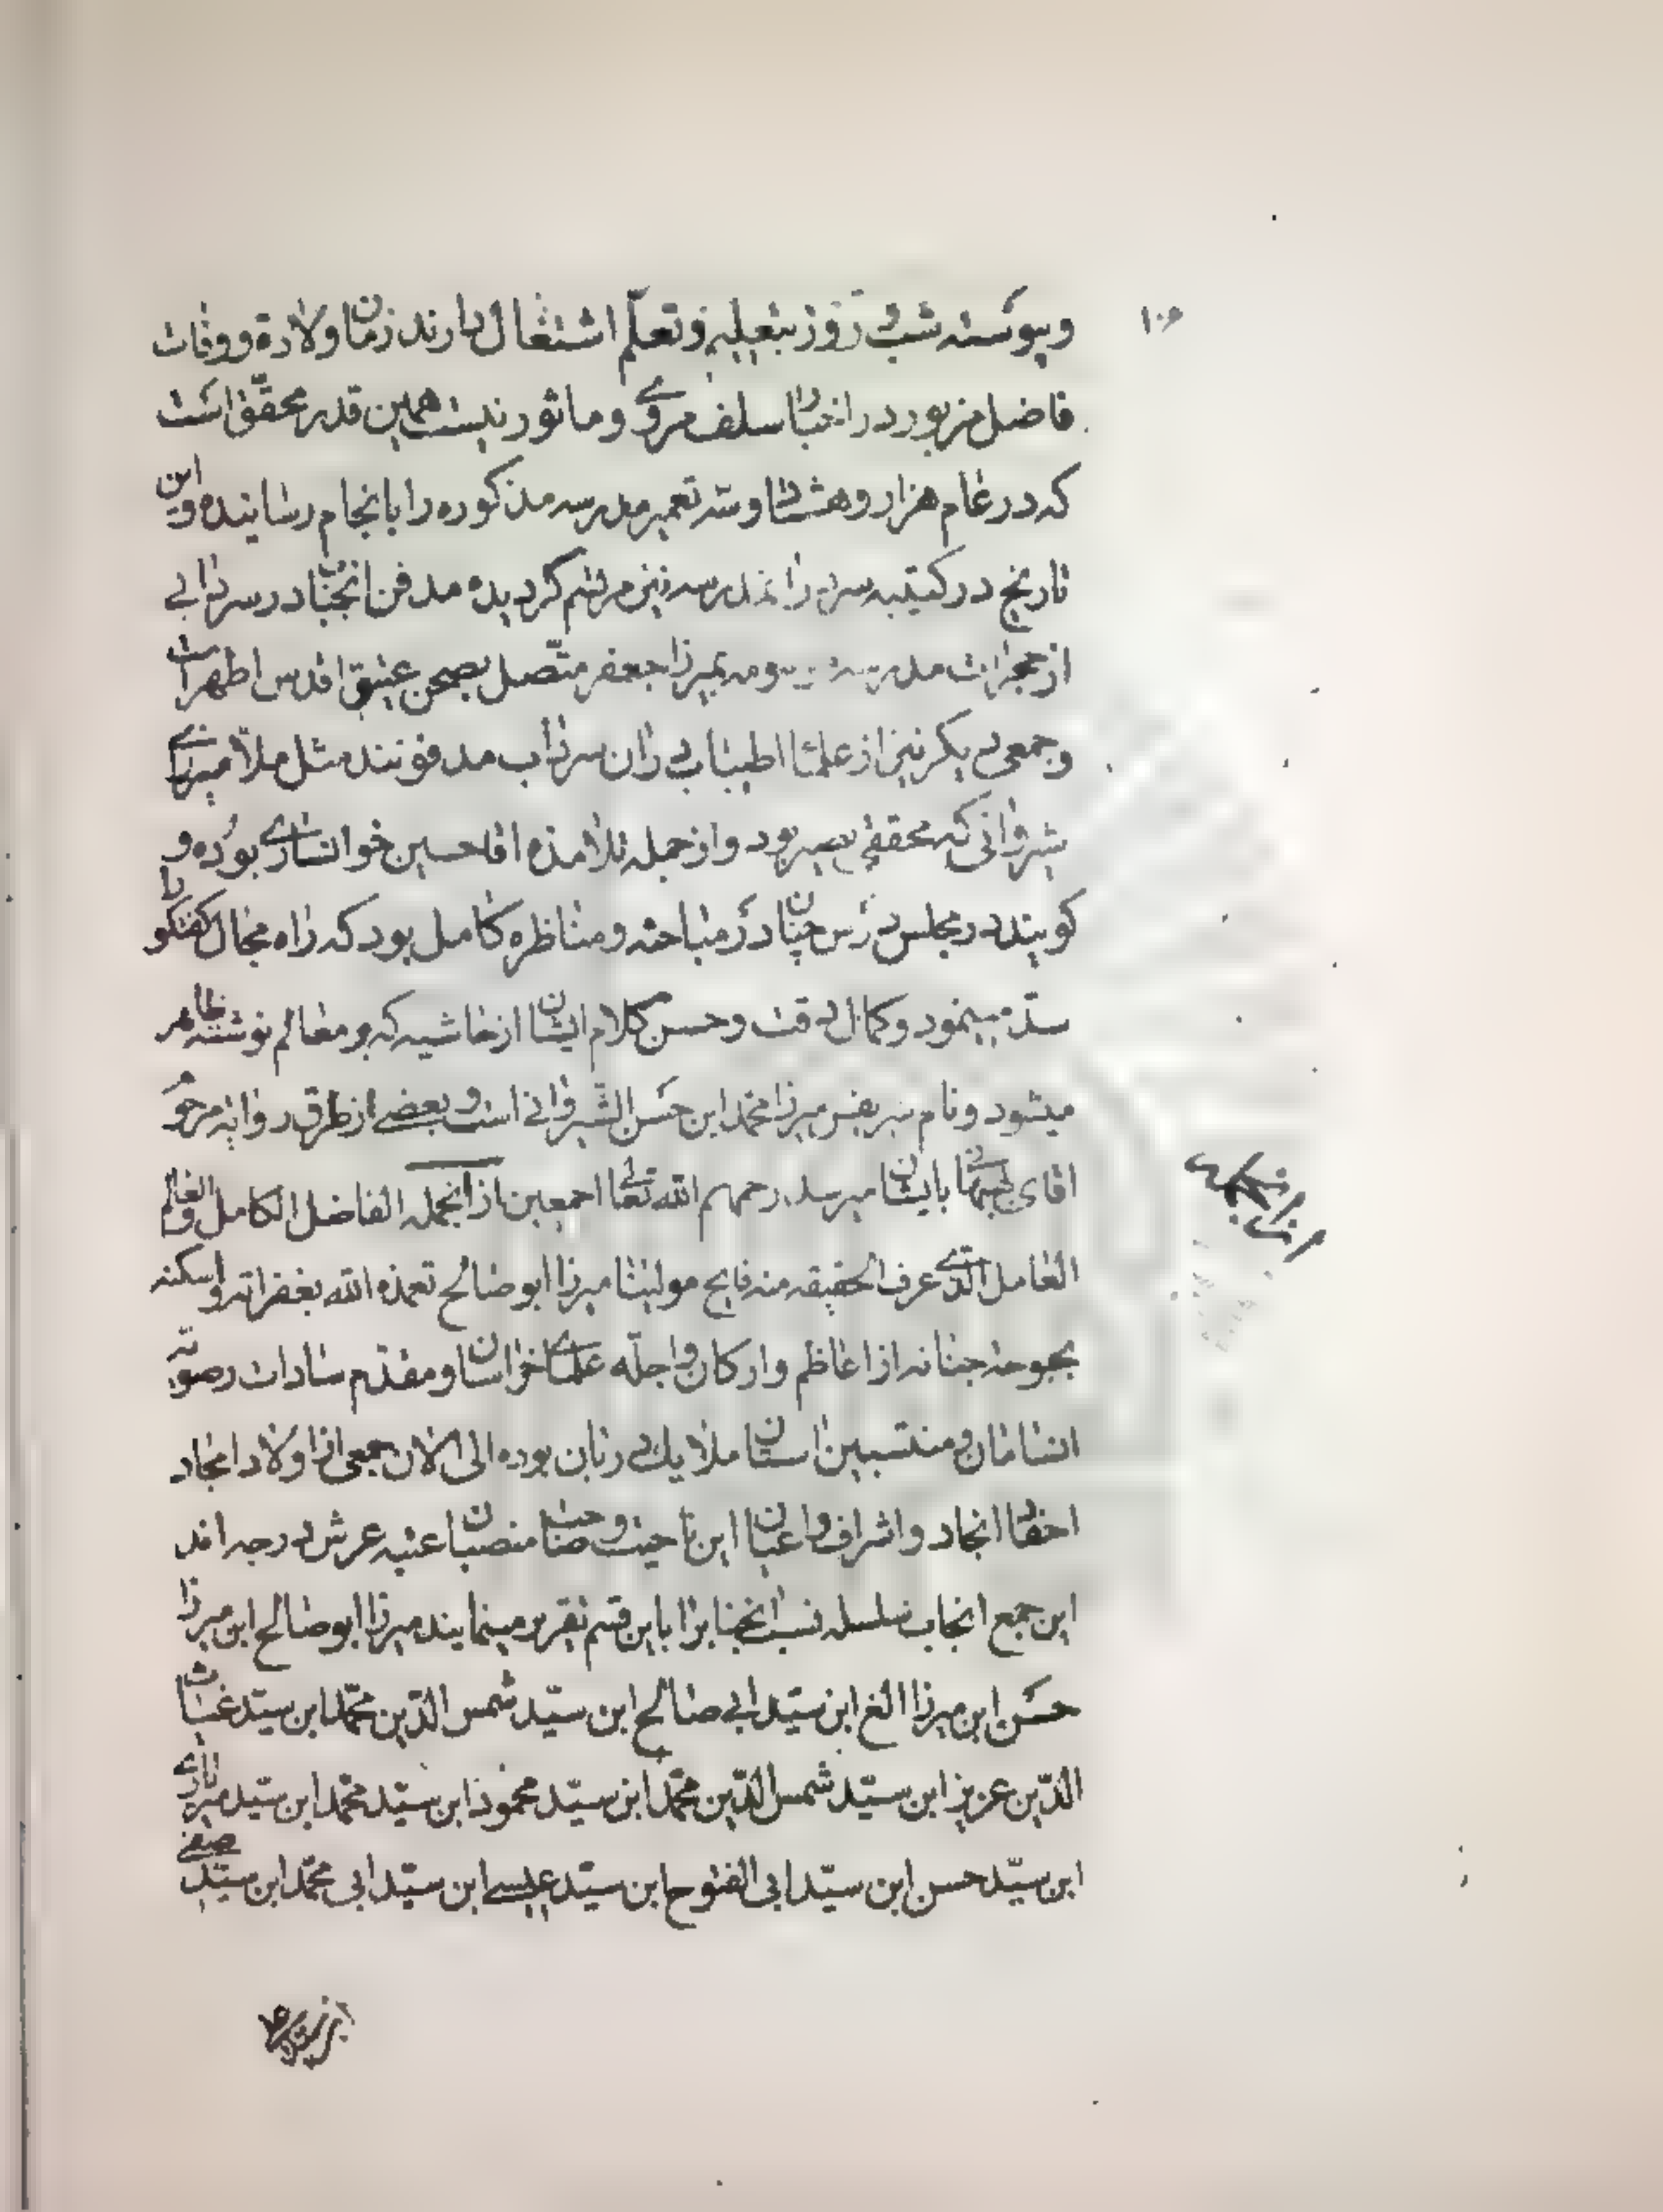 ۱۰۶
و پیوسته شب و روز بتعلیم و تعلّم اشتغال دارند زمان ولادة و وفات
فاضل مزبور در اخبار سلف مروی و ماثور نیست همین قدر محقّق است
که در عام هزار و هشتاد و سه تعمیر مدرسه مذکوره را بانجام رسانیده و این
تاریخ در کتیبه سر در مدرسه نیز مرتسم کردیده مدفن انجناب در سردابی
از حجرات مدرسه موسومه بمیرزا جعفر متّصل بصحن عتیق اقدس اطهر است
و جمعی دیکر نیز از علماء اطیاب در ان سرداب مدفونند مثل ملّا میرزای
شیروانی که محققی بصیر بود و از جمله تلامذه اقا حسین خوانساری بوده و
کویند در مجلس درس چنان در مباحثه و مناظره کامل بود که راه مجال کفتکو با
سدّ مینمود و کمال دقت و حسن کلام ایشان از حاشیه که بر معالم نوشته ظاهر
میشود و نام شریفش میرزا محمد ابن حسن الشّیروانی است و بعضی از طرق روایة مرحوم
اقای بهبهانی بایشان میرسد رحمهم الله تعالی اجمعین از انجمله الفاضل الکامل و العالم
العامل الّذی عرف الحقیقه منه فایح مولینا میرزا ابو صالح تغمده الله بغفرانه و اسکنه
بحبوحة جنانه از اعاظم و ارکان و اجلّه علمای خراسان و مقدّم سادات رضویّه
انسامان و منتسبین استان ملایک دربان بوده الی الان جمعی از اولاد امجاد
احفاد انجاد و اشراف و اعیان این ناحیت و صاحب منصبان عتبه عرش درجه اند
این جمع انجاب سلسله نسب انجناب را باین قسم تقریر مینمایند میرزا ابو صالح ابن میرزا
حسن ابن میرزا الغ ابن سیّد ابی صالح ابن سیّد شمس الدّین محمّد ابن سیّد غیاث
الدّین عزیز ابن سیّد شمس الدّین محمّد ابن سیّد محمود ابن سیّد محمّد ابن سیّد میر
ابن سیّد حسن ابن سیّد ابی الفتوح ابن سیّد عیسی ابن سیّد ابی محمّد ابن سیّد صفی
از انجمله
ابن سیّد